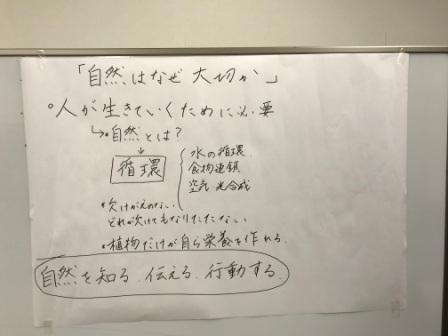 「自然はなぜ大切か」
°人が生きていくために必要
↳•自然とは?
↓
循環
水の循環
食物連鎖
空気 光合成
•欠けがえのない
どれが欠けてもなりたたない
•植物だけが自ら栄養を作れる
自然を知る.伝える.行動する.